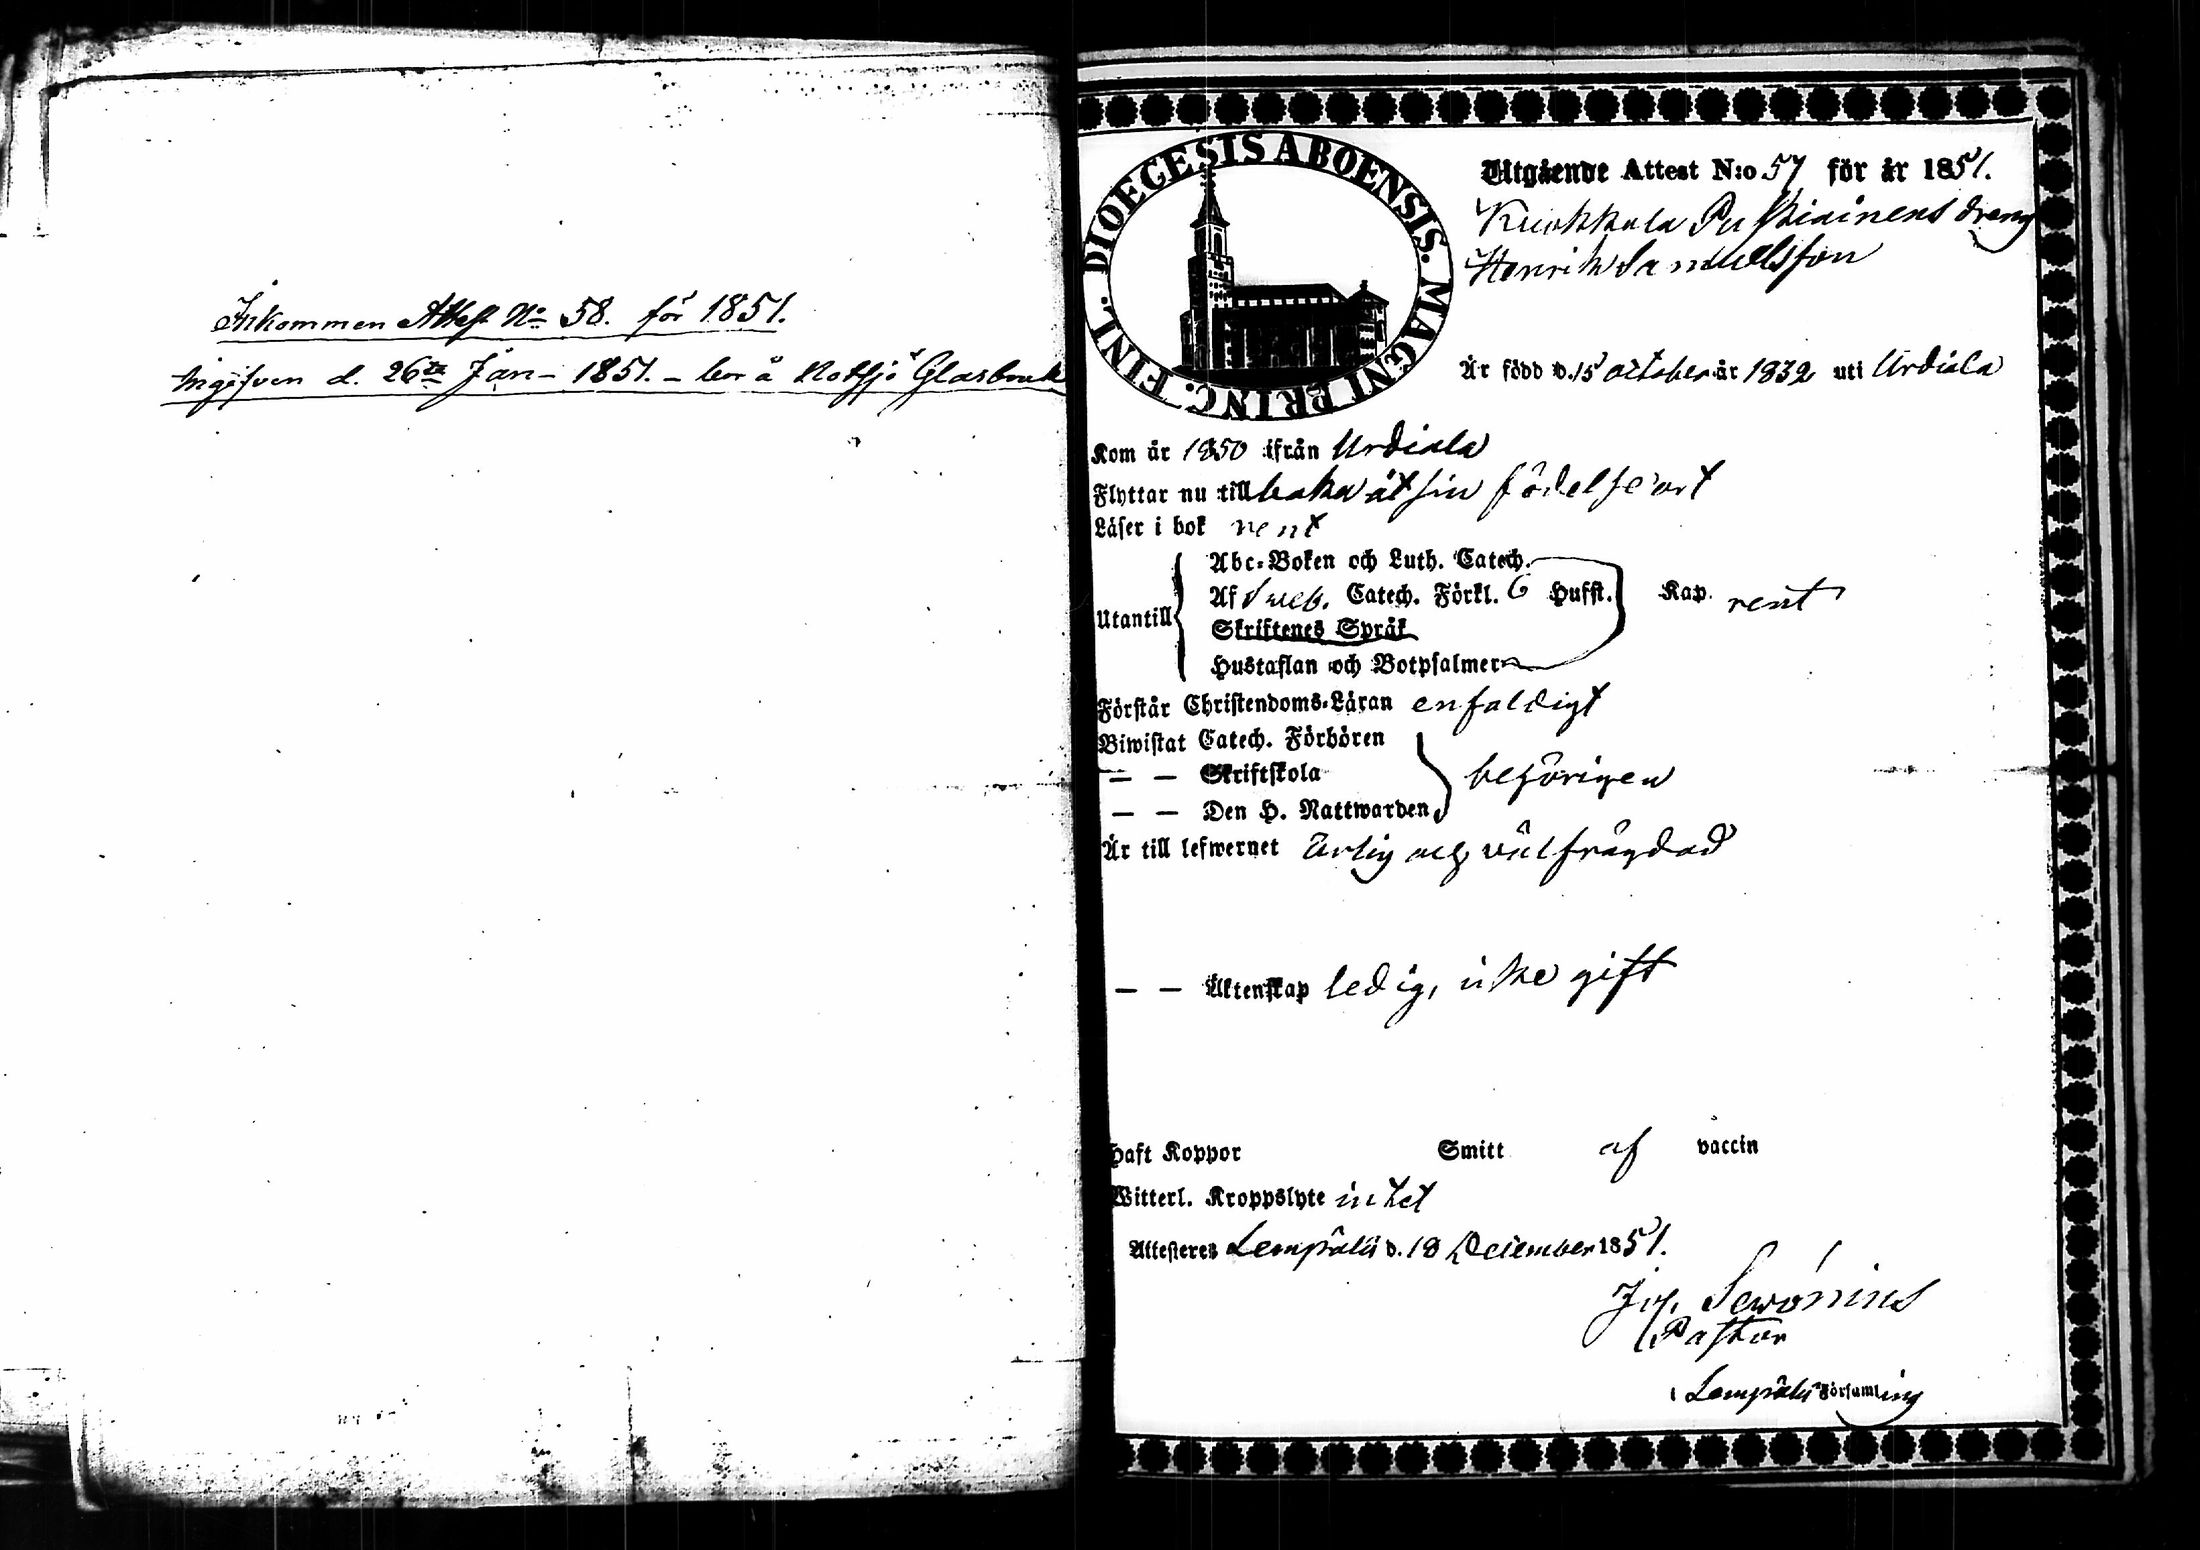 Inkommen Attest No 58. för 1851.
Ingifven d. 26te Jan- 1851. – bor å Notsjö Glasbruk
DIOECESIS ABOENSIS. MAGNI PRINC. FINL.
Utgående Attest N:o 57 för år 1851.
Kuokkala Puskiainens dreng
Henrik Samuelsson
Är född d. 15 october år 1832 uti Urdiala
Kom år 1850 ifrån Urdiala
Flyttar nu tillbaka åt sin födelseort
Läser i bok rent
Abc-Boken och Luth. Catech.
Utantill Af Sweb. Catech. Förkl. 6 Hufst. Kap. rent
Skriftenes Språk
Hustaflan och Botpsalmer
Förstår Christendoms-Läran enfaldigt
Biwistat Catech. Förhören
— — Skriftskola behörigen
— — Den H. Nattwarden
Är till lefwernet ärlig och välfrägdad
— — Äktenskap ledig, icke gift
Haft Koppor Smitt af vaccin
Witterl. Kroppslyte intet
Attesteres Lempälä d. 18 December 1851.
Jos. Sewónius
Pastor
i Lempälä Församling